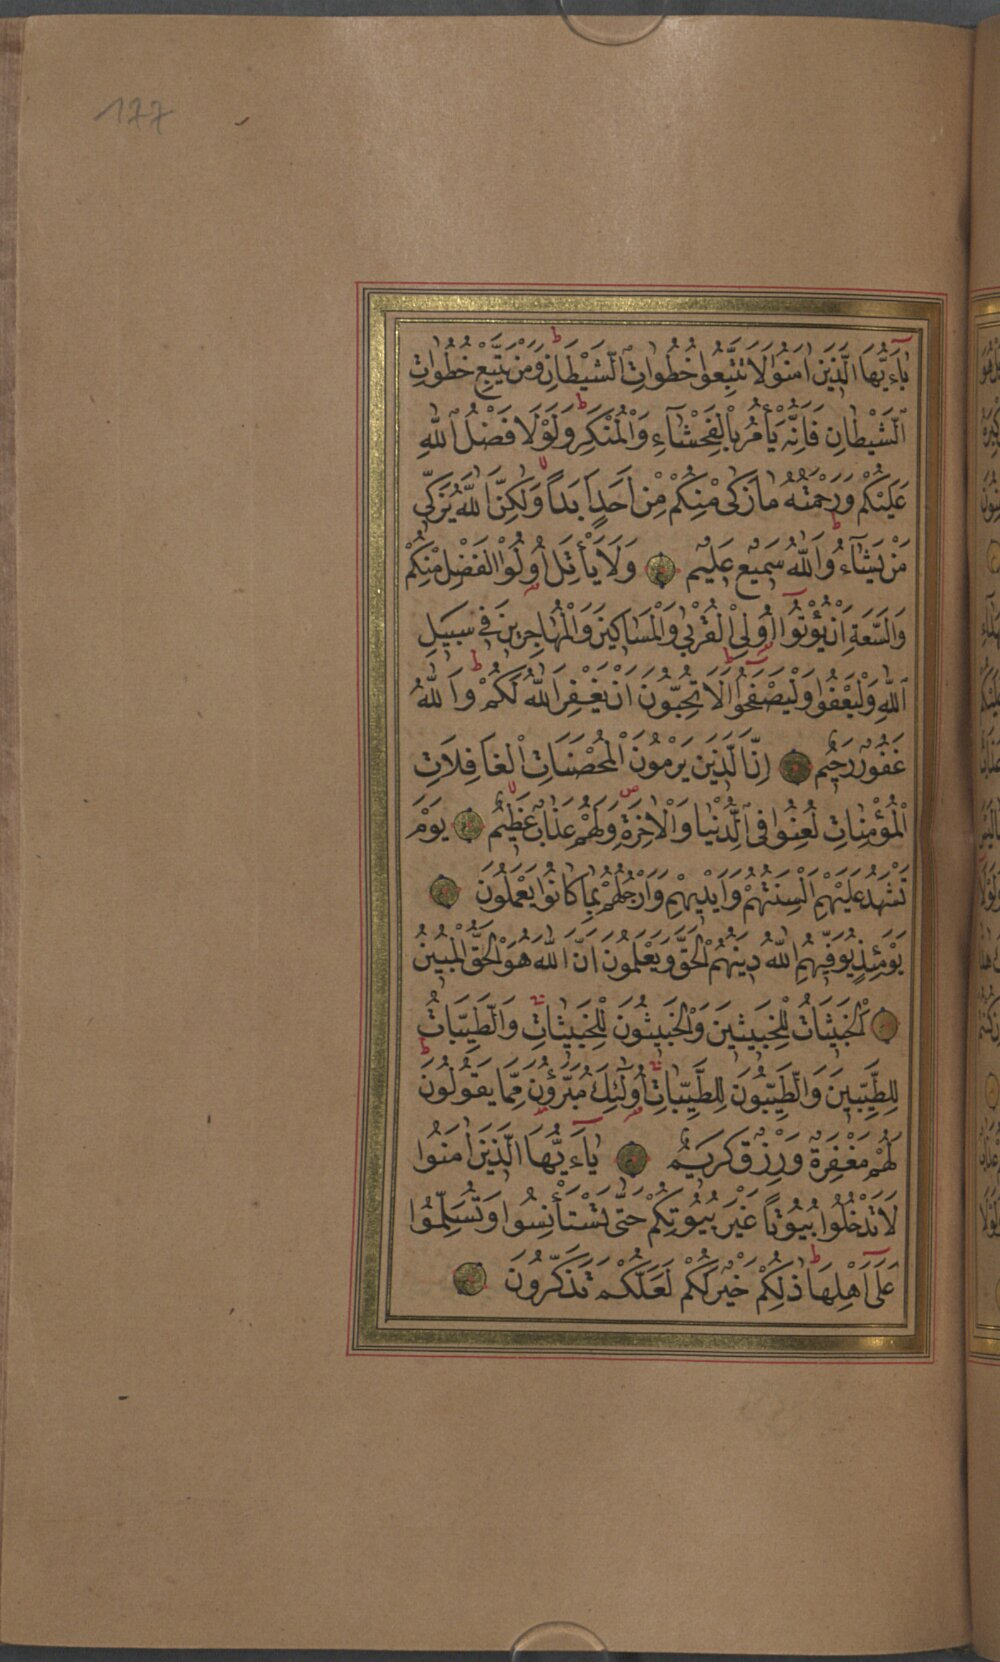 177
يَاءَيُّهَا الَّذِينَ اٰمَنُوا لَا تَتَّبِعُوا خُطُوَاتِ الشَّيْطَانِ وَمَنْ يَتَّبِعْ خُطُوَاتِ
الشَّيْطَانِ فَاِنَّهُ يَأْمُرُ بِالْفَحْشَاءِ وَالْمُنْكَرِ وَلَوْلَا فَضْلُ اللّٰهِ
عَلَيْكُمْ وَرَحْمَتُهُ مَا زَكٰى مِنْكُمْ مِنْ اَحَدٍ اَبَدًا وَلٰكِنَّ اللّٰهَ يُزَكِّى
مَنْ يَشَاءُ وَاللّٰهُ سَمِيعٌ عَلِيمٌ وَلَا يَأْتَلِ اُولُوا الْفَضْلِ مِنْكُمْ
وَالسَّعَةِ اَنْ يُؤْتُوا اُولِى الْقُرْبٰى وَالْمَسَاكِينَ وَالْمُهَاجِرِينَ فِى سَبِيلِ
اللّٰهِ وَلْيَعْفُوا وَلْيَصْفَحُوا اَلَا تُحِبُّونَ اَنْ يَغْفِرَ اللّٰهُ لَكُمْ وَاللّٰهُ
غَفُورٌ رَحِيمٌ اِنَّ الَّذِينَ يَرْمُونَ الْمُحْصَنَاتِ الْغَافِلَاتِ
الْمُؤْمِنَاتِ لُعِنُوا فِى الدُّنْيَا وَالْاٰخِرَةِ وَلَهُمْ عَذَابٌ عَظِيمٌ يَوْمَ
تَشْهَدُ عَلَيْهِمْ اَلْسِنَتُهُمْ وَاَيْدِيهِمْ وَاَرْجُلُهُمْ بِمَا كَانُوا يَعْمَلُونَ
يَوْمَئِذٍ يُوَفِّيهِمُ اللّٰهُ دِينَهُمُ الْحَقَّ وَيَعْلَمُونَ اَنَّ اللّٰهَ هُوَ الْحَقُّ الْمُبِينُ
اَلْخَبِيثَاتُ لِلْخَبِيثِينَ وَالْخَبِيثُونَ لِلْخَبِيثَاتِ وَالطَّيِّبَاتُ
لِلطَّيِّبِينَ وَالطَّيِّبُونَ لِلطَّيِّبَاتِ اُولٰئِكَ مُبَرَّؤُنَ مِمَّا يَقُولُونَ
لَهُمْ مَغْفِرَةٌ وَرِزْقٌ كَرِيمٌ يَاءَيُّهَا الَّذِينَ اٰمَنُوا
لَا تَدْخُلُوا بُيُوتًا غَيْرَ بُيُوتِكُمْ حَتّٰى تَسْتَأْنِسُوا وَتُسَلِّمُوا
عَلٰى اَهْلِهَا ذٰلِكُمْ خَيْرٌ لَكُمْ لَعَلَّكُمْ تَذَكَّرُونَ